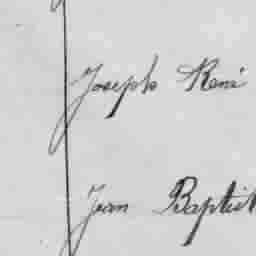 Joseph René
Jean Baptist